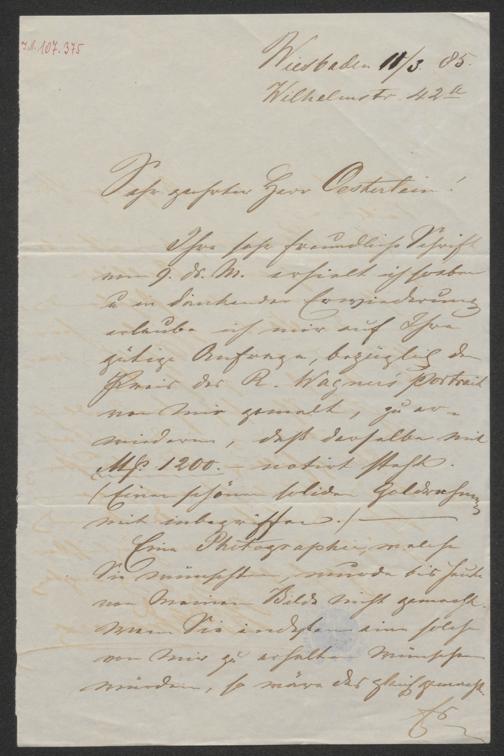 I.N. 107.375
Wiesbaden 11/3. 85.
Wilhelmstr. 42 a
Sehr geehrter Herr Oesterlein!
Ihre sehr freundliche Schrift
vom 9. ds. M. erhielt ich soeben
u in dankender Erwiederung
erlaube ich mir auf Ihre
gütige Anfrage, bezüglich den
Preis des R. Wagner's Portrait
von mir gemalt, zu er-
wiedern, daß derselbe mit
Mk. 1200.– notirt steht.
(Einen schönen soliden Goldrahmen
mit inbegriffen.)
Eine Photographie, welche
Sie wünschten, wurde bis heute
von meinem Bilde nicht gemacht.
Wenn Sie indessen eine solche
von mir zu erhalten wünschen
würden, so wäre das gleich gemacht.
Es